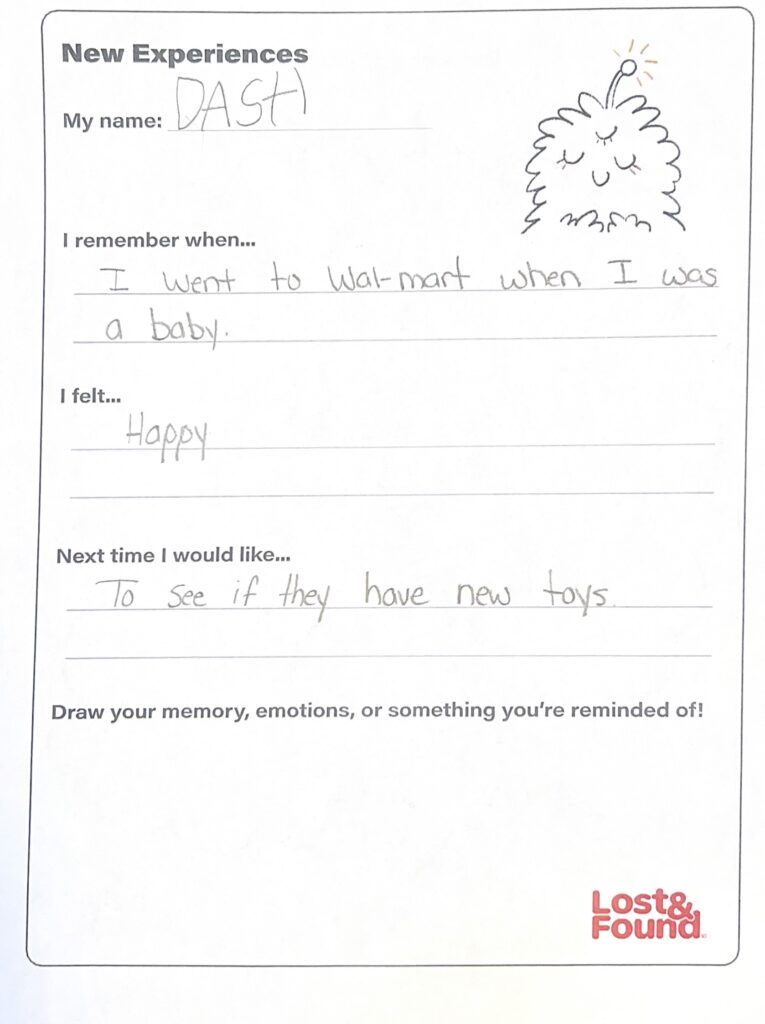 New Experiences
My name: DASH
I remember when...
I went to Wal-mart when I was
a baby.
I felt...
Happy
Next time I would like...
To see if they have new toys.
Draw your memory, emotions, or something you're reminded of!
Lost&
Found